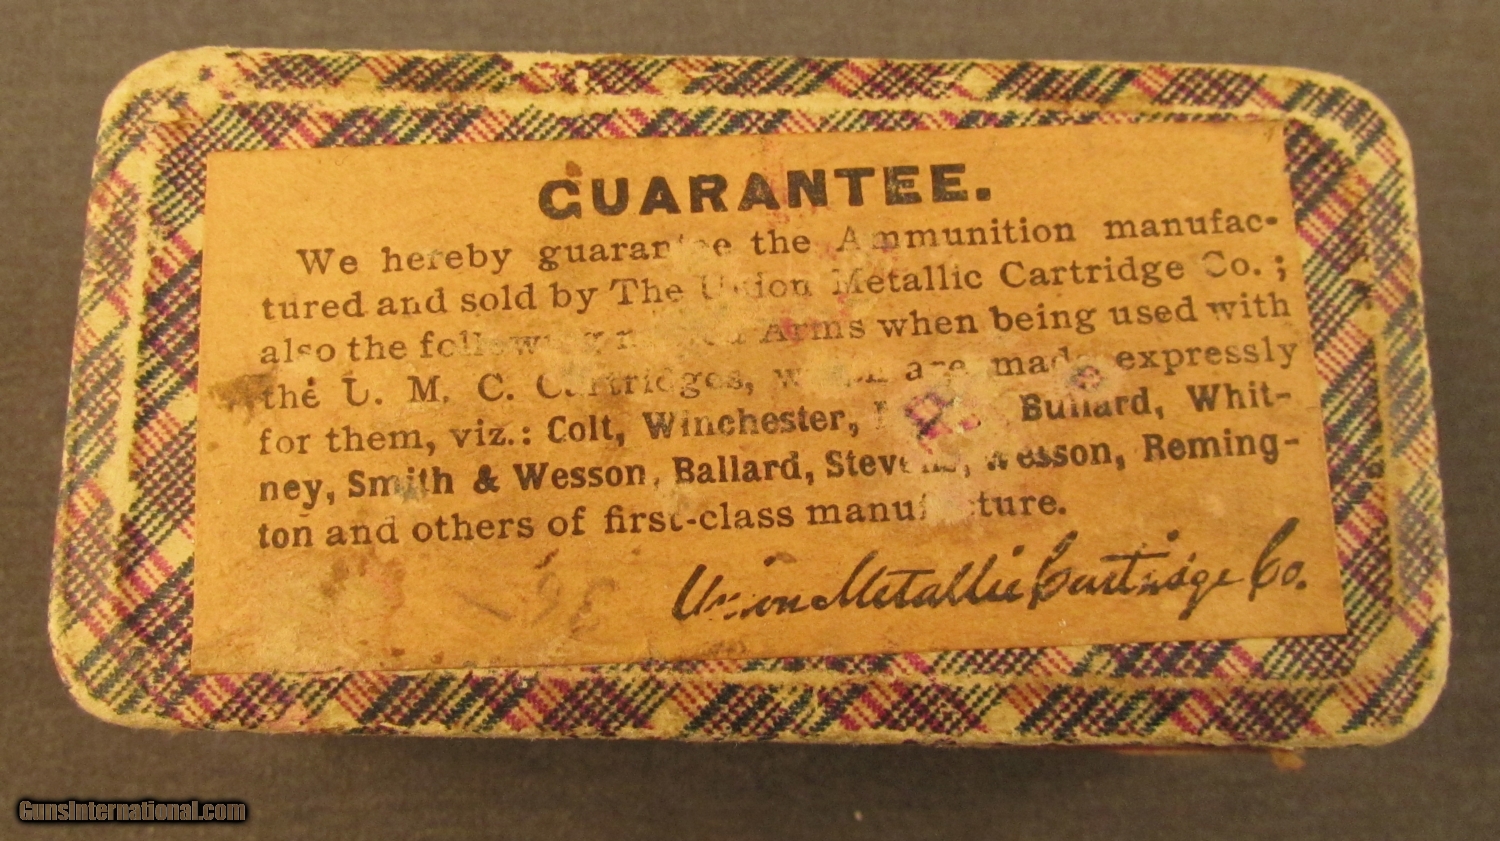 GUARANTEE.
We hereby guarantee the Ammunition manufac-
tured and sold by The Union Metallic Cartridge Co.;
also the following named Arms when being used with
the U. M. C. Cartridges, which are made expressly
for them, viz.: Colt, Winchester, Bullard, Whit-
ney, Smith & Wesson, Ballard, Stevens, Wesson, Reming-
ton and others of first-class manufacture.
Union Metallic Cartridge Co.
36
GunsInternational.com